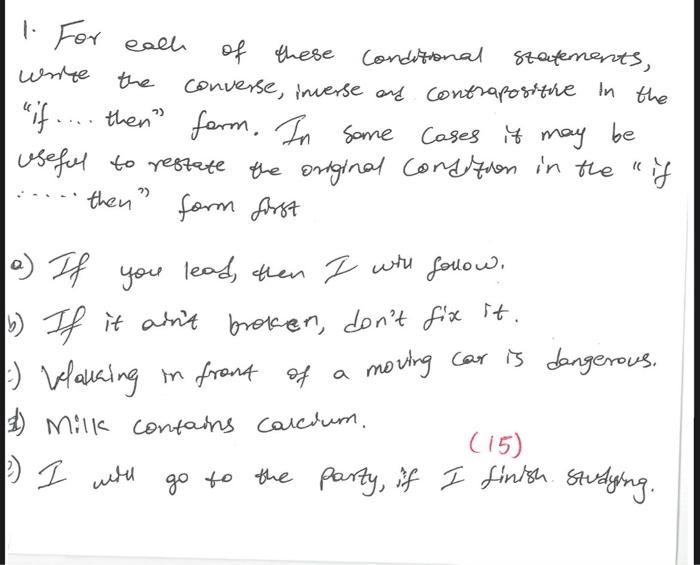 1. For each of these conditional statements,
write the converse, inverse and contrapositive in the
"if .... then" form. In some cases it may be
useful to restate the original condition in the "if
...... then" form first
a) If you lead, then I will follow.
b) If it ain't broken, don't fix it.
c) Walking in front of a moving car is dangerous.
d) Milk contains calcium.
(15)
e) I will go to the party, if I finish studying.